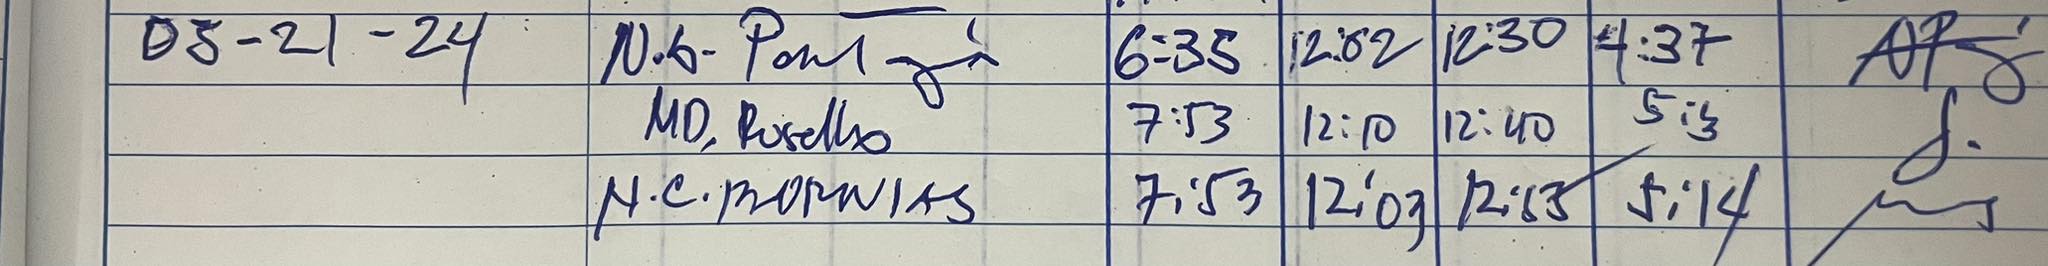 05-21-24 N.G. 6:35 12:02 12:30 4:37
MD. Rosello 7:53 12:10 12:40 5:13
N.C. BORNIAS 7:53 12:03 12:53 5:14